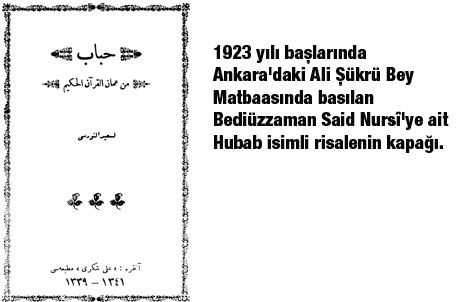 حباب
من عمان القرآن الحكيم
لسعيد النورسى
آنقره : «على شكرى» مطبعه‌سى
١٣٤١ – ١٣٣٩
1923 yılı başlarında
Ankara'daki Ali Şükrü Bey
Matbaasında basılan
Bediüzzaman Said Nursî'ye ait
Hubab isimli risalenin kapağı.